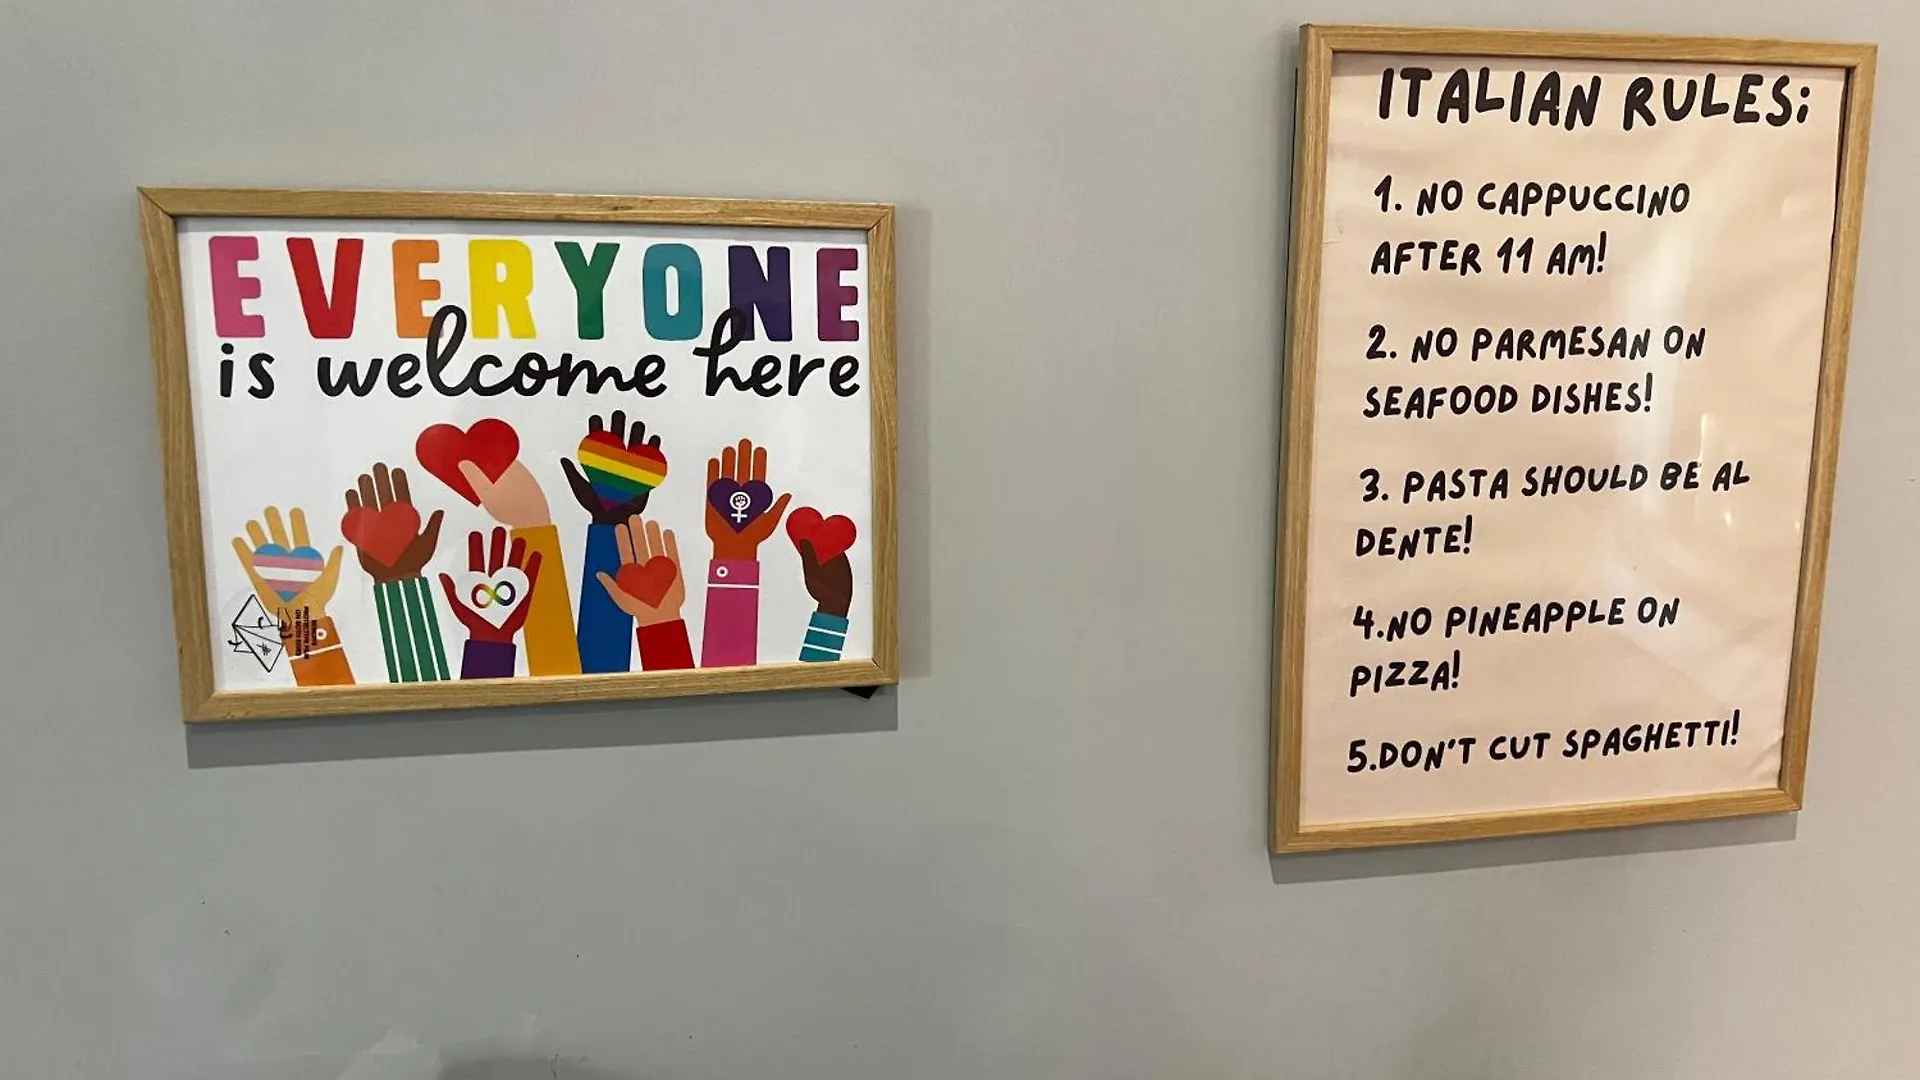 EVERYONE
is welcome here
ITALIAN RULES:
1. NO CAPPUCCINO
AFTER 11 AM!
2. NO PARMESAN ON
SEAFOOD DISHES!
3. PASTA SHOULD BE AL
DENTE!
4.NO PINEAPPLE ON
PIZZA!
5.DON'T CUT SPAGHETTI!